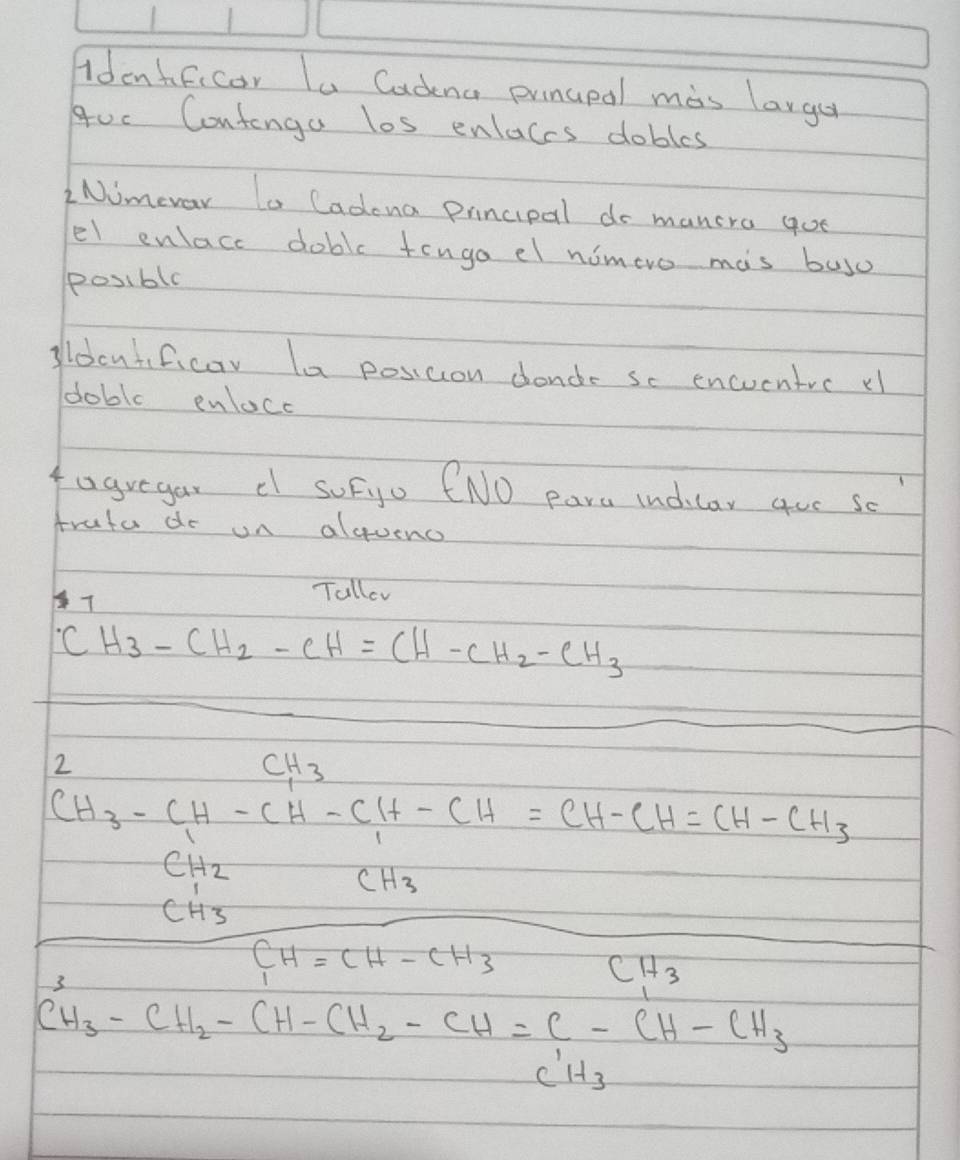 1 Identificar la Cadena principal más larga
que Contenga los enlaces dobles
2 Númerar la Cadena Principal de manera que
el enlace doble tenga el número más bajo
posible
3 Identificar la posicion donde se encuentre el
doble enlace
4 agregar el sufijo ENO para indicar que se
trata de un alqueno
Taller
1
CH3 - CH2 - CH = CH - CH2 - CH3
2
CH3
CH3 - CH - CH - CH - CH = CH - CH = CH - CH3
CH2 CH3
CH3
CH = CH - CH3 CH3
3
CH3 - CH2 - CH - CH2 - CH = C - CH - CH3
CH3